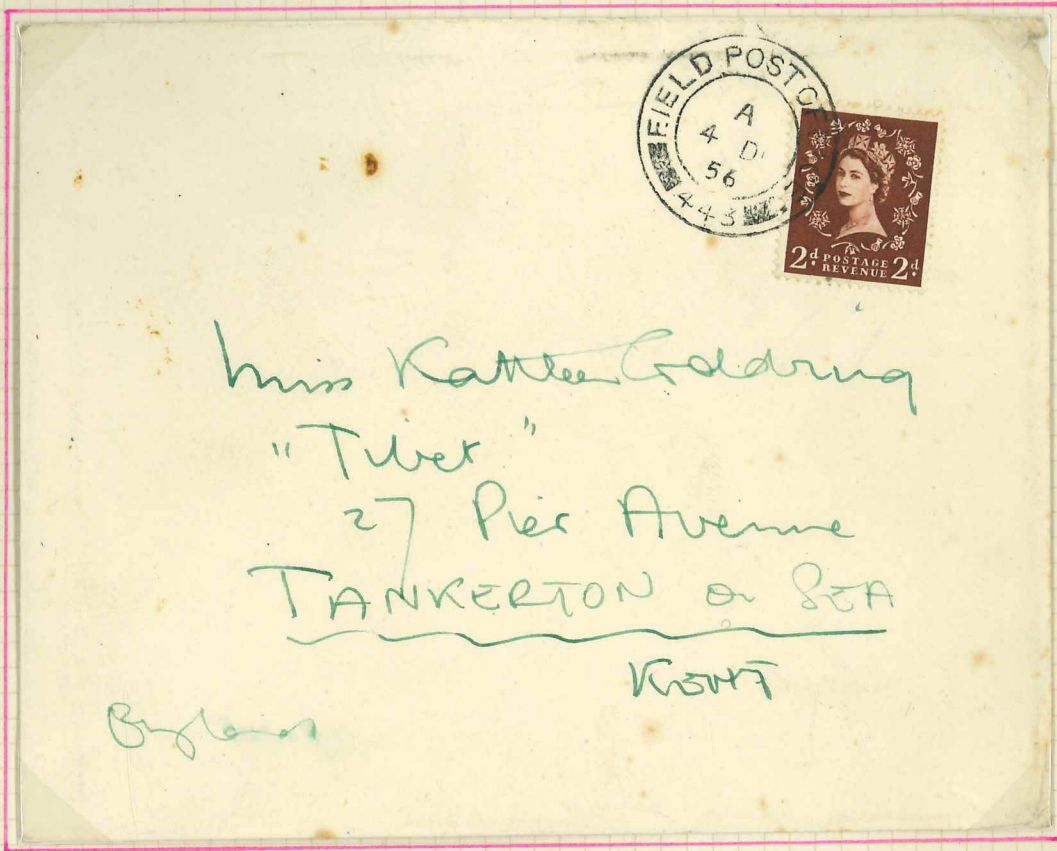 FIELD POST OF
A
4 D
56
443
2d POSTAGE REVENUE 2d
Miss Kathleen Goddring
"Tibet"
27 Pier Avenue
TANKERTON on SEA
KENT
England